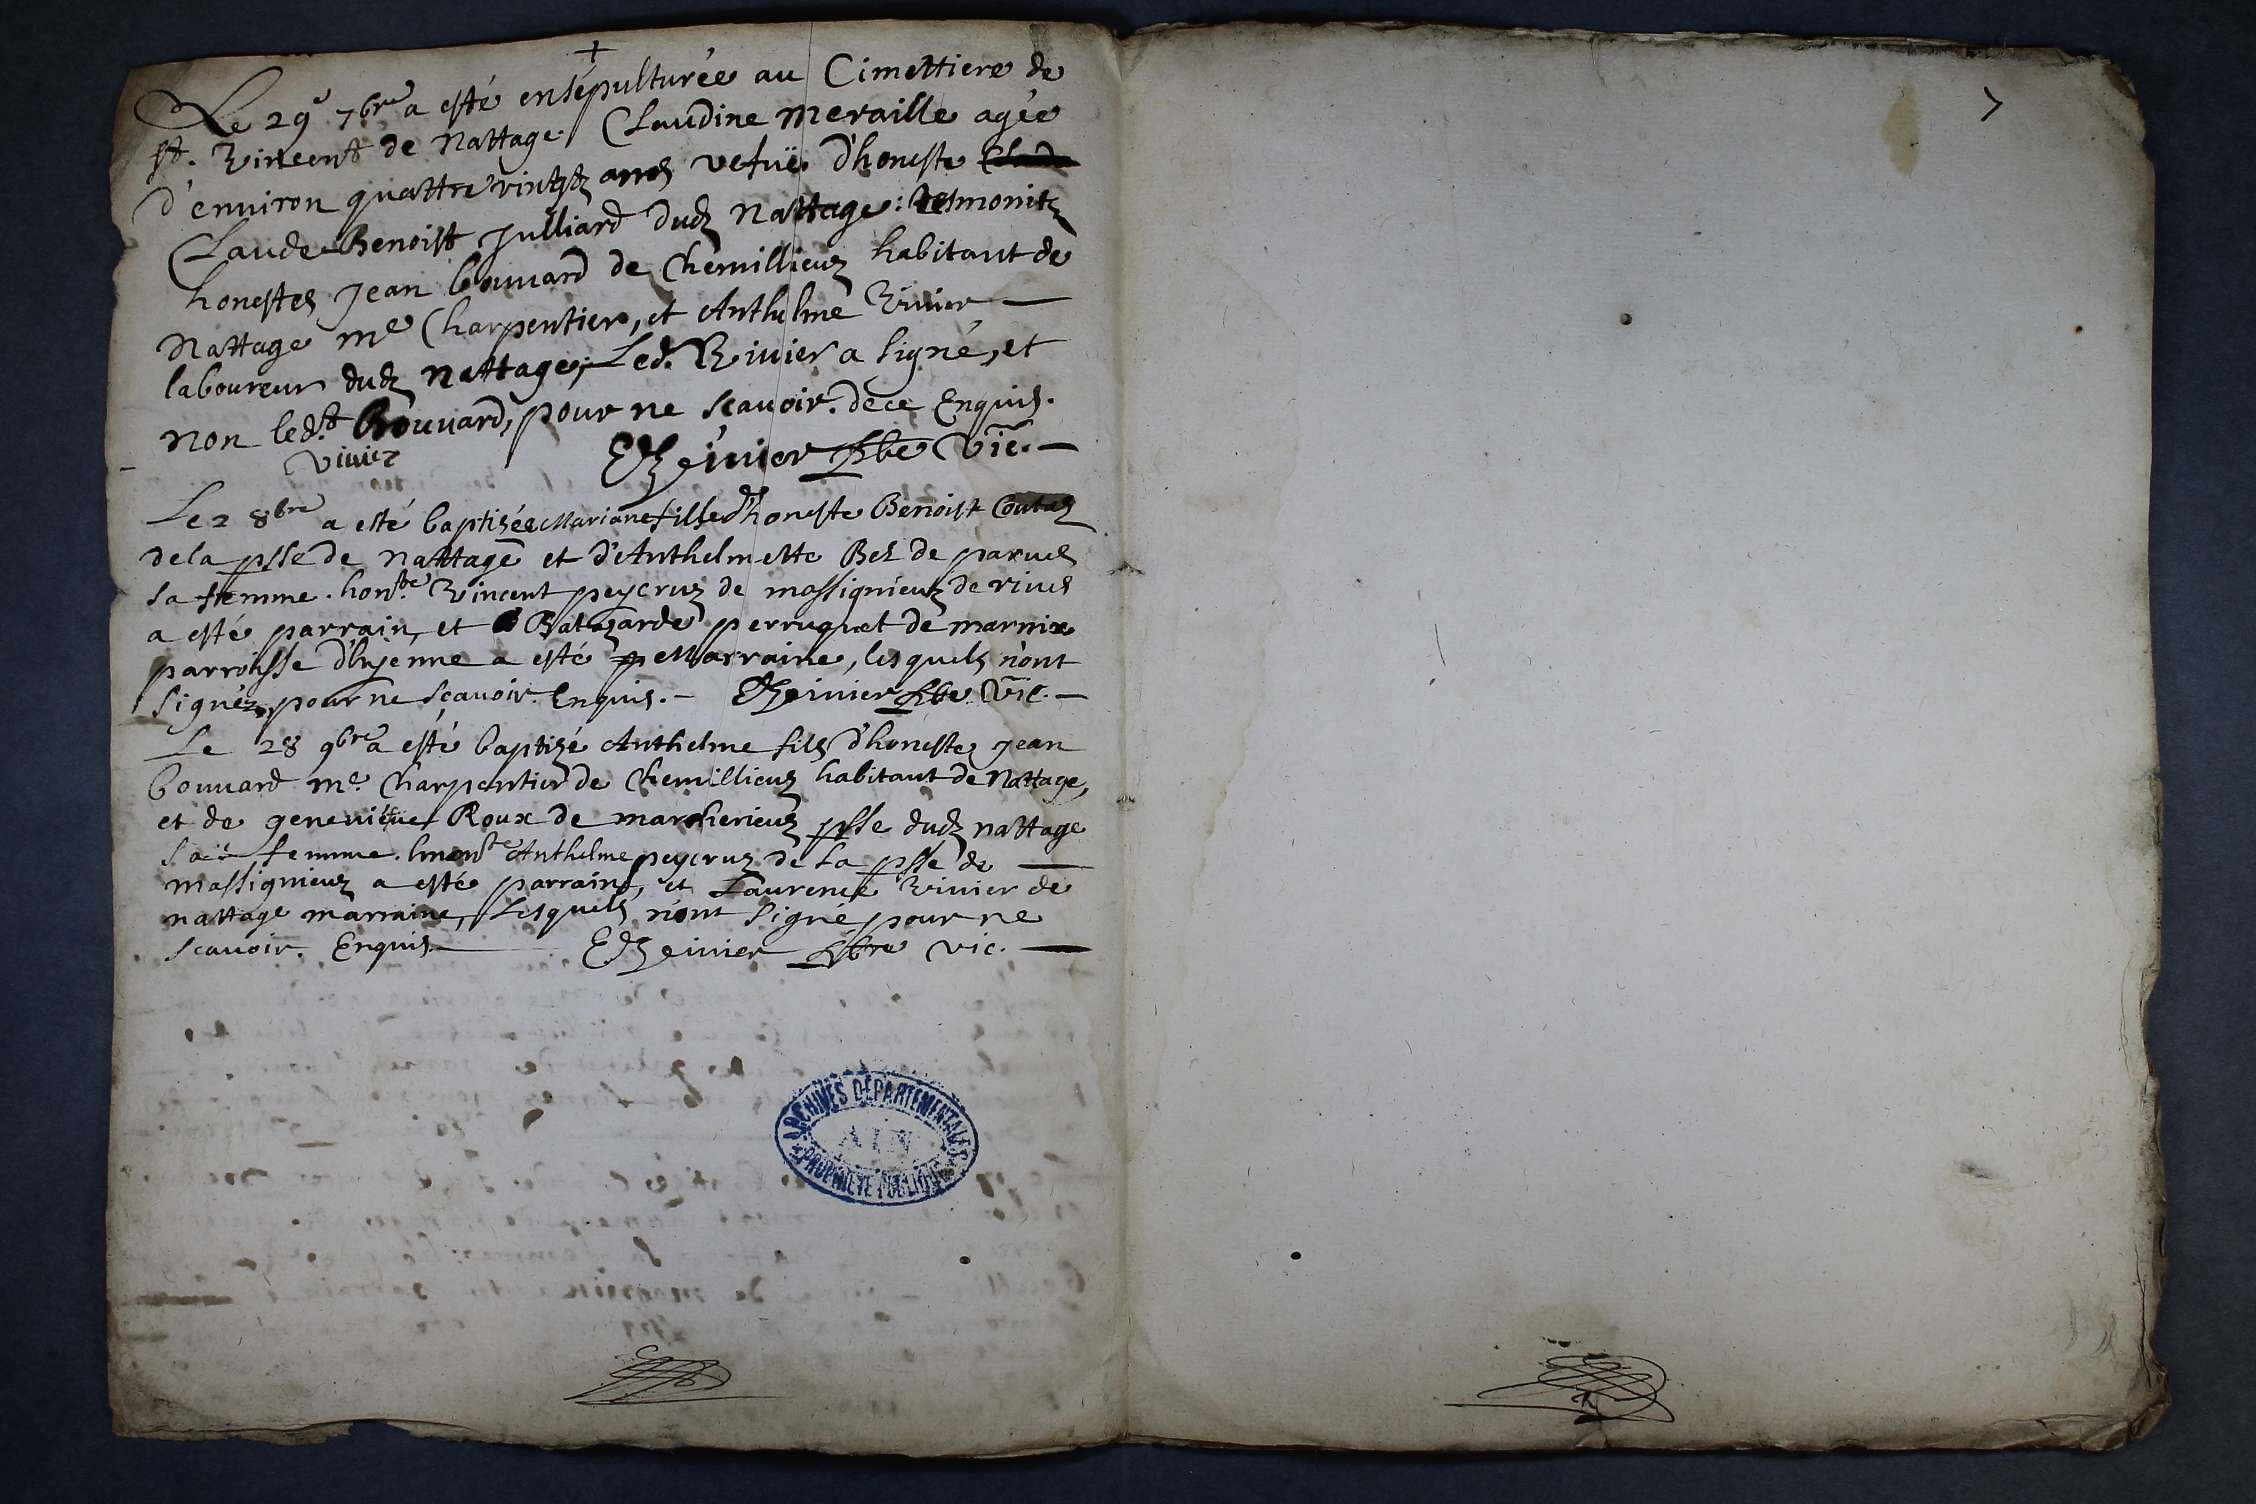 +
Le 29e 7bre a esté ensépulturée au Cimettiere de
st. Vincent de Nattage Claudine Meraille agée
d'enuiron quattre vintgtz ans vefuë d'honeste Claude
Claude Benoist Julliard dudz Nattage: Tesmonitz
honestes Jean bouuard de Chemillieuz habitant de
Nattage me Charpentier, et Anthelme Viuier
laboureur dudz Nattage; Led. Viuier a signé, et
non led.t Bouuard, pour ne sçauoir. de ce Enquis.
viuier Viuier Pbre Vic.
Le 2 8bre a esté baptizée Mariane fille d'honeste Benoist Coutaz
de la psse de Nattage et d'Anthelmette Bel de parues
sa femme. honste Vincent peycruz de massignieuz de riues
a esté parrain, et Batazarde perruquet de marnix
parroisse d'hyenne a esté p Marraine, lesquels n'ont
signéz, pour ne sçauoir. Enquis. Viuier Pbre Vic.
Le 28 9bre a esté baptizé Anthelme fils d'honeste Jean
bouuard me. Charpentier de Chemillieuz habitant de Nattage,
et de geneuieue Roux de marcherieuz psse dudz nattage
sa femme. honste Anthelme peycruz de la psse de
massignieuz a esté parrain, et Laurence Viuier de
nattage marraine, Lesquels n'ont signé pour ne
scauoir. Enquis Viuier Pbre vic.
ARCHIVES DÉPARTEMENTALES
AIN
PROPRIÉTÉ PUBLIQUE
7